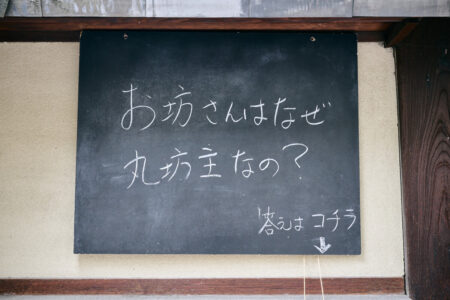 お坊さんはなぜ
丸坊主なの?
答えは コチラ
↓